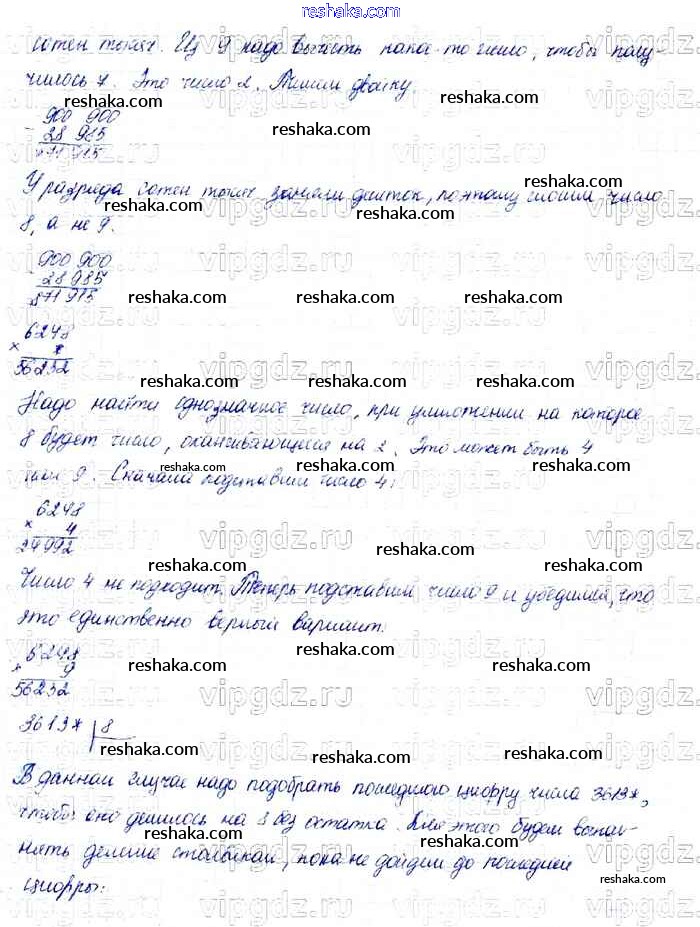 reshaka.com
сотен тысяч. Из 9 надо вычесть како-то число, чтобы полу-
чилось 7. Это число 2. Пишем двойку.
reshaka.com reshaka.com
900 900
28 985
*71 915
reshaka.com reshaka.com
У разряда сотен тысяч заняли десяток, поэтому число
8, а не 9.
reshaka.com reshaka.com
900 900
28 985
871 915
reshaka.com reshaka.com
6248
× *
56232
reshaka.com reshaka.com
Надо найти однозначное число, при умножении на которое
8 будет число, оканчивающееся на 2. Это может быть 4
или 9. Сначала подставим число 4:
reshaka.com reshaka.com
6248
× 4
24992
reshaka.com reshaka.com
Число 4 не подходит. Теперь подставим число 9 и убедимся, что
это единственно верный вариант:
reshaka.com reshaka.com
6248
× 9
56232
3613* 8
reshaka.com reshaka.com
В данном случае надо подобрать последнюю цифру числа 3613*,
reshaka.com reshaka.com
чтобы оно делилось на 8 без остатка. Для этого будем выпол-
нять деление столбиком, пока не дойдем до последней
reshaka.com reshaka.com
цифры:
reshaka.com
vipgdz.ru